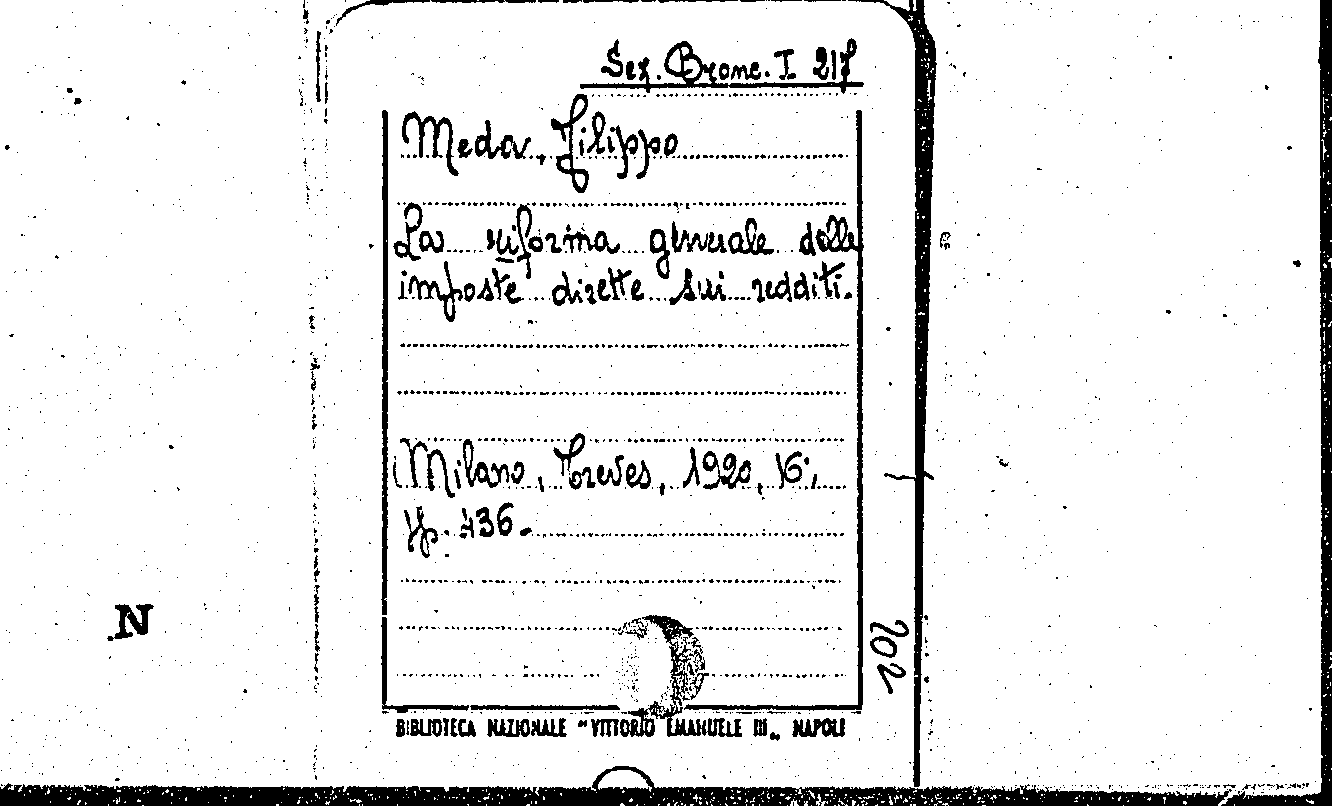 Sez. Bronc. I 217
Meda, Filippo
La riforma generale delle
imposte dirette sui redditi.
Milano, Treves, 1920, 16°,
pp. 436.
N
202
BIBLIOTECA NAZIONALE "VITTORIO EMANUELE III„ NAPOLI